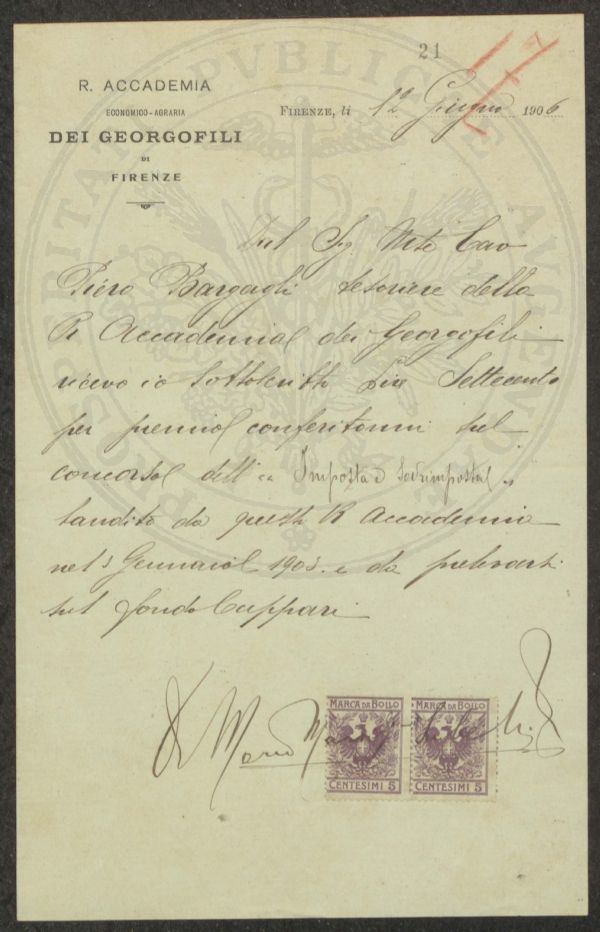 21
R. ACCADEMIA
ECONOMICO-AGRARIA
DEI GEORGOFILI
DI
FIRENZE
FIRENZE, li 12 Giugno 1906
Dal Sig. Mse Cav
Piero Bargagli tesoriere della
R Accademia dei Georgofili
ricevo io sottoscritto Lire Settecento
per premio conferitomi sul
concorso dell' " Imposta e sovrimposta "
bandito da questa R Accademia
nel 3 Gennaio 1903. e da prelevarsi
sul fondo Cuppari
Mario
MARCA DA BOLLO
CENTESIMI 5
MARCA DA BOLLO
CENTESIMI 5
PROSPERITATI PUBLICAE AUGENDAE